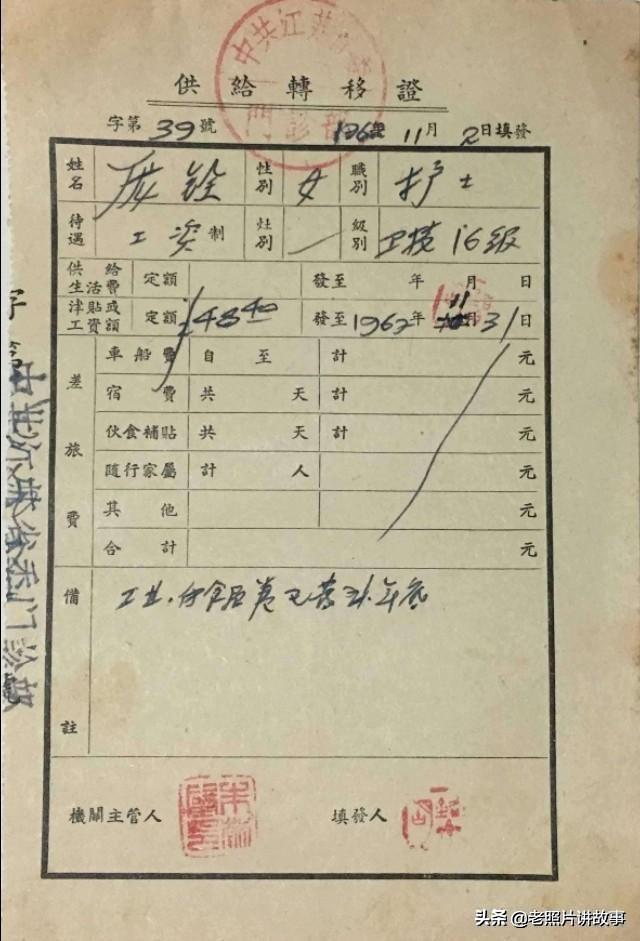 供給轉移證
字第39號 1962年11月2日填發
姓名 銓 性別 女 職別 护士
待遇 工资制 灶別 級別 卫技16級
供給生活費 定額 發至 年 月 日
津貼或工資額 定額 48 40 發至1962年11月31日
差旅費
車船費 自 至 計 元
宿費 共 天 計 元
伙食補貼 共 天 計 元
隨行家屬 計 人 元
其他 元
合計 元
備註
機關主管人 填發人
中共江苏省委
門診部
中共江苏省委門診部
字第
头条 @老照片讲故事